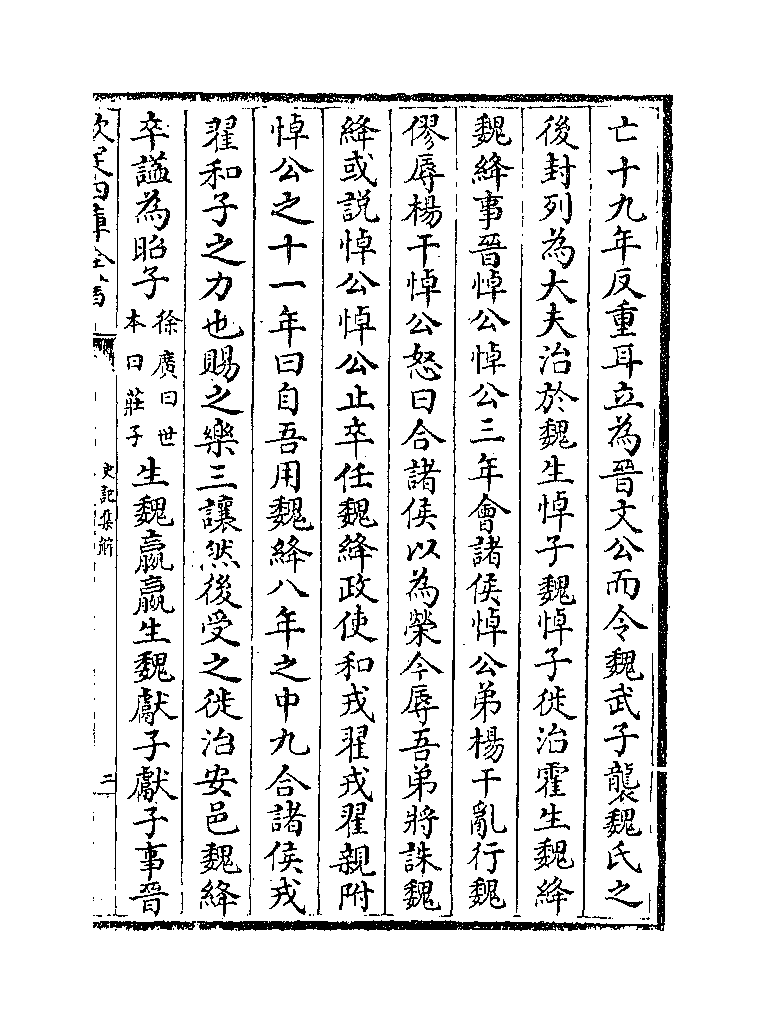 亡十九年反重耳立為晉文公而令魏武子襲魏氏之
後封列為大夫治於魏生悼子魏悼子徙治霍生魏絳
魏絳事晉悼公悼公三年會諸侯悼公弟楊干亂行魏
僇辱楊干悼公怒曰合諸侯以為榮今辱吾弟將誅魏
絳或說悼公悼公止卒任魏絳政使和戎翟戎翟親附
悼公之十一年曰自吾用魏絳八年之中九合諸侯戎
翟和子之力也賜之樂三讓然後受之徙治安邑魏絳
卒諡為昭子徐廣曰世本曰莊子生魏嬴嬴生魏獻子獻子事晉
欽定四庫全書
史記集解
二